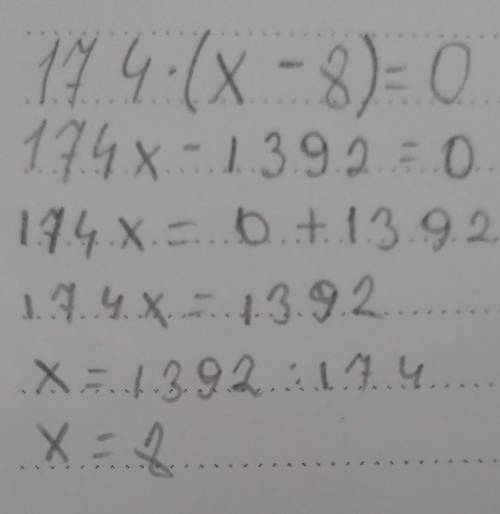 174·(x-8)=0
174x-1392=0
174x=0+1392
174x=1392
x=1392:174
x=8